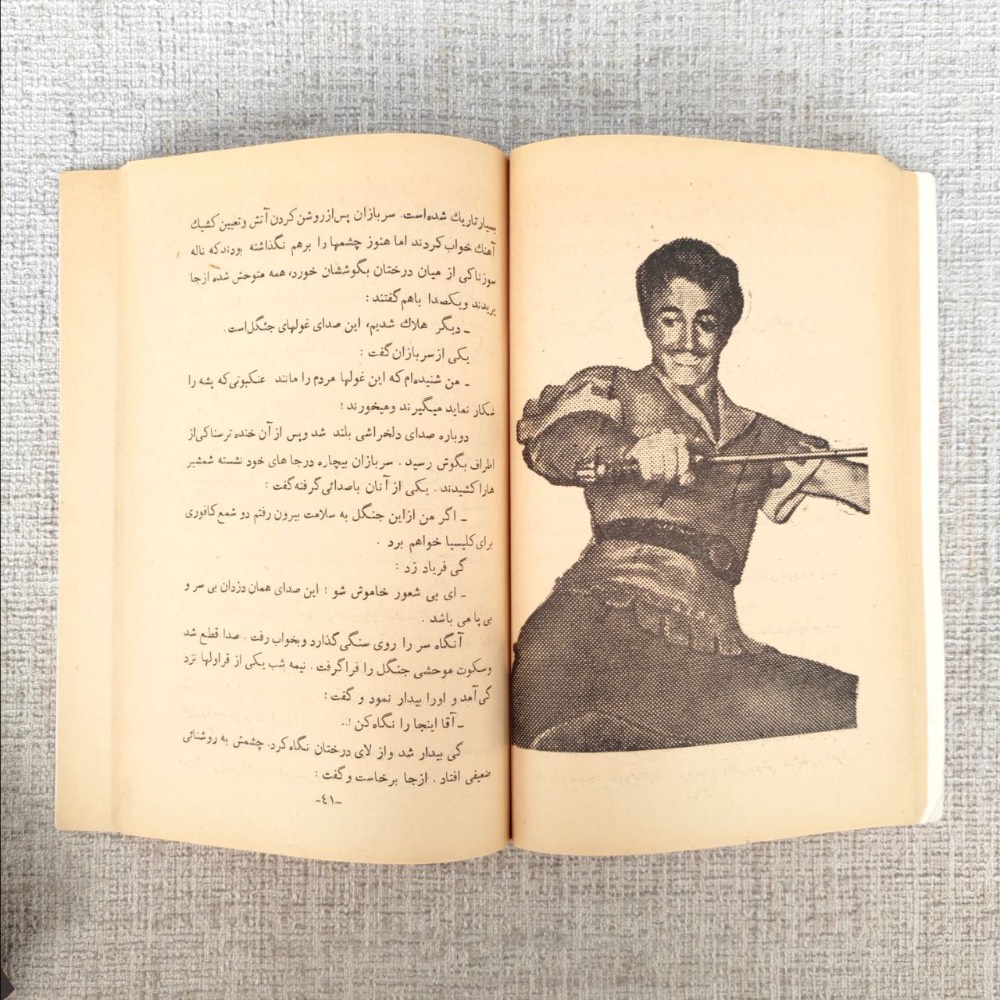 بسیار تاریك شده‌است. سربازان پس‌از روشن کردن آتش وتعیین کشیك
آهنك خواب کردند اما هنوز چشمها را برهم نگذاشته بودندکه ناله
سوزناکی از میان درختان بگوششان خورد، همه متوحش شده ازجا
پریدند ویکصدا باهم گفتند :
ـ دیگر هلاك شدیم، این صدای غولهای جنگل است.
یکی ازسربازان گفت :
ـ من شنیده‌ام که این غولها مردم را مانند عنکبوتی‌که پشه را
شکار نماید میگیرند ومیخورند !
دوباره صدای دلخراشی بلند شد وپس از آن خنده ترسناکی از
اطراف بگوش رسید . سربازان بیچاره درجا های خود نشسته شمشیر
هارا کشیدند . یکی از آنان باصدائی گرفته گفت :
ـ اگر من ازاین جنگل به سلامت بیرون رفتم دو شمع کافوری
برای کلیسیا خواهم برد .
گی فریاد زد :
ـ ای بی شعور خاموش شو ! این صدای همان دزدان بی سر و
بی پا می باشد .
آنگاه سر را روی سنگی گذارد وبخواب رفت . صدا قطع شد
وسکوت موحشی جنگل را فراگرفت . نیمه شب یکی از قراولها نزد
گی آمد و اورا بیدار نمود و گفت :
ـ آقا اینجا را نگاه کن !..
گی بیدار شد واز لای درختان نگاه کرد. چشمش به روشنائی
ضعیفی افتاد . ازجا برخاست وگفت :
-٤١-